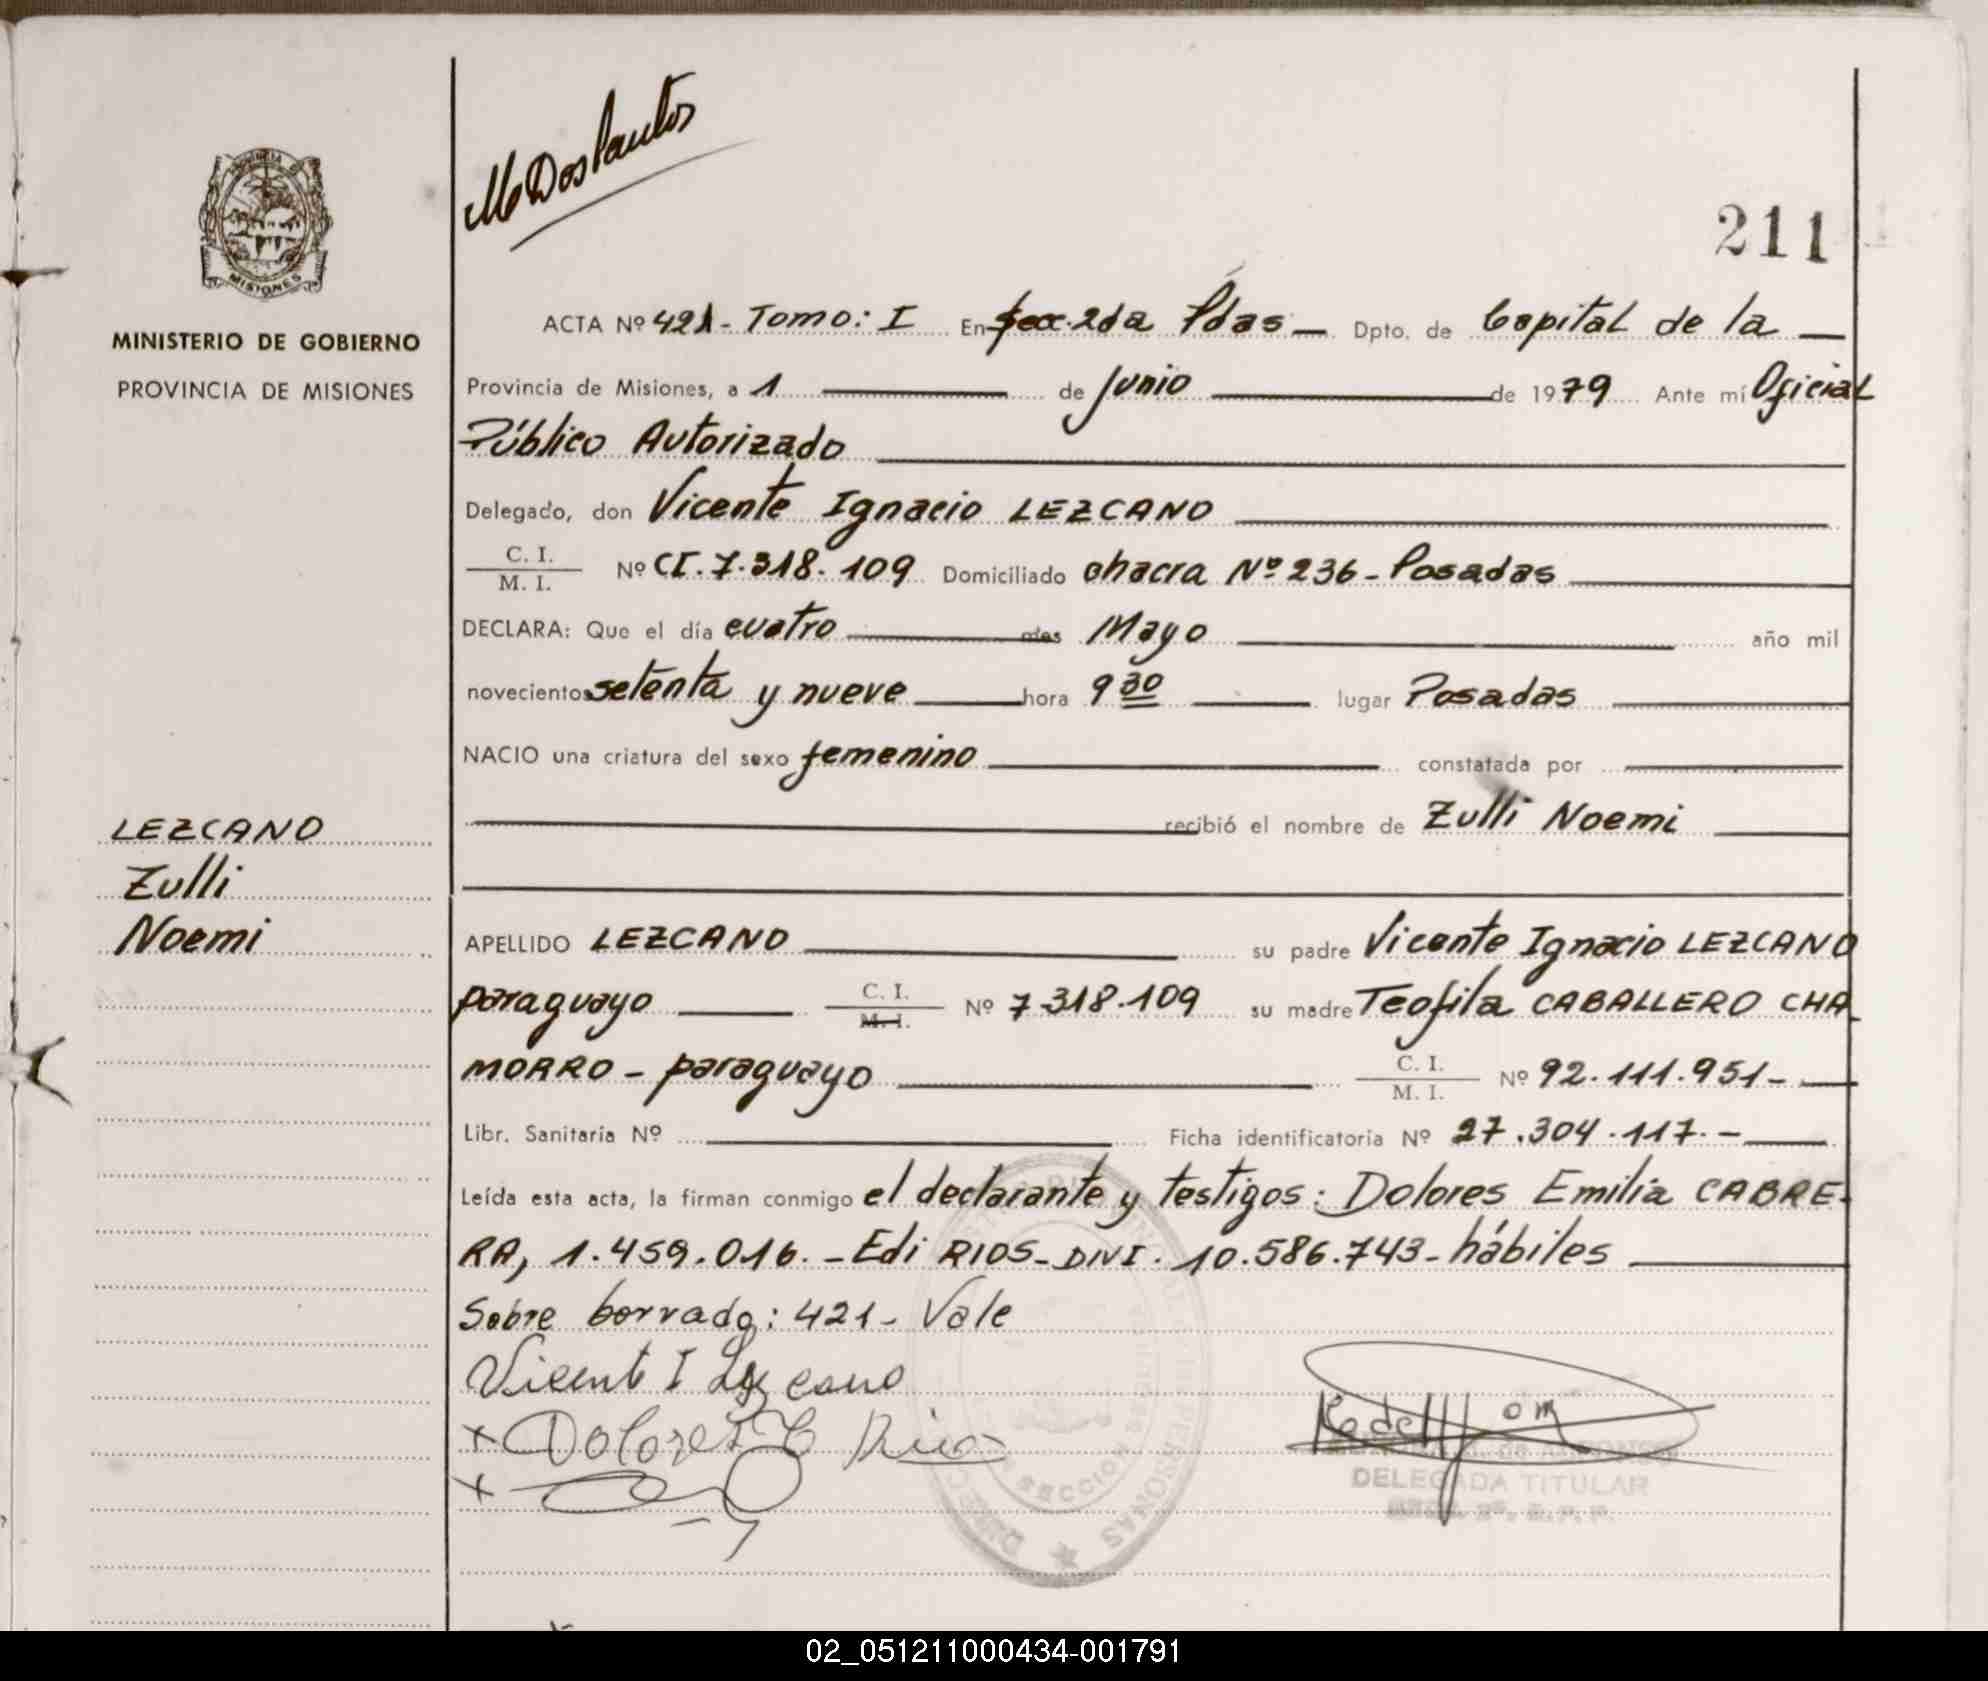 211
MINISTERIO DE GOBIERNO
PROVINCIA DE MISIONES
MISIONES
LEZCANO
Zulli
Noemi
ACTA Nº 421 - Tomo: I En Secc. 2da Pdas Dpto. de Capital de la
Provincia de Misiones, a 1 de junio de 1979 Ante mí Oficial
Público Autorizado
Delegado, don Vicente Ignacio LEZCANO
C. I. / M. I. Nº CI. 7.318.109 Domiciliado chacra Nº 236 - Posadas
DECLARA: Que el día cuatro mes Mayo año mil
novecientos setenta y nueve hora 9 30 lugar Posadas
NACIO una criatura del sexo femenino constatada por
recibió el nombre de Zulli Noemi
APELLIDO LEZCANO su padre Vicente Ignacio LEZCANO
paraguayo C. I. / M. I. Nº 7.318.109 su madre Teofila CABALLERO CHA
MORRO - paraguayo C. I. / M. I. Nº 92.111.951 -
Libr. Sanitaria Nº Ficha identificatoria Nº 27.304.117. -
Leída esta acta, la firman conmigo el declarante y testigos: Dolores Emilia CABRE-
RA, 1.459.016. - Edi RIOS - DNI. 10.586.743 - hábiles
Sobre borrado: 421 - Vale
Vicente I Lezcano
DELEGADA TITULAR
SECCION
PERSONAS
02_051211000434-001791